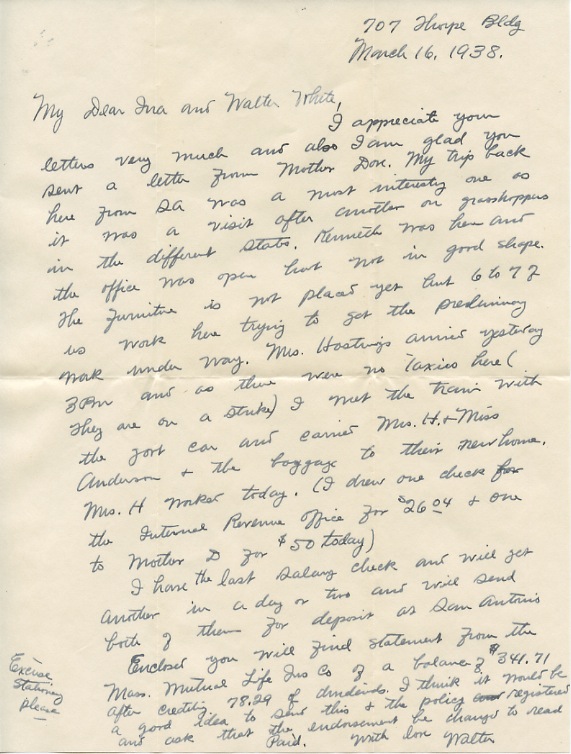 707 Thorpe Bldg
March 16, 1938.
My Dear Ina and Walter White,
I appreciate your
letters very much and also I am glad you
sent a letter from Mother Dove. My trip back
here from SA was a most interesting one as
it was a visit after another on grasshoppers
in the different states. Kenneth was here and
the office was open but not in good shape.
The furniture is not placed yet but 6 to 7 of
us work here trying to get the preliminary
work under way. Mrs. Hastings arrived yesterday
3 Pm and as there were no Taxies here (
They are on a strike) I met the train with
the govt car and carried Mrs. H. & Miss
Anderson & the baggage to their new home.
Mrs. H worked today. (I drew one check for
the Internal Revenue office for $26.04 & one
to Mother D for $50 today)
I have the last salary check and will get
another in a day or two and will send
both of them for deposit at San Antonio
Enclosed you will find statement from the
Mass. Mutual Life Ins Co of a balance of $341.71
after crediting 78.29 of dividends. I think it would be
a good idea to send this & the policy registered
and ask that the endorsement be changed to read
Paid. With love Walter
Excuse
stationery
please